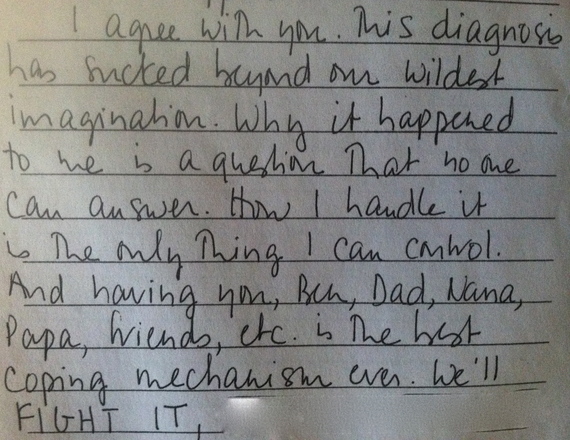 I agree with you. This diagnosis
has sucked beyond our wildest
imagination. Why it happened
to me is a question that no one
can answer. How I handle it
is the only thing I can control.
And having you, Ben, Dad, Nana,
Papa, friends, etc. is the best
coping mechanism ever. We'll
FIGHT IT,